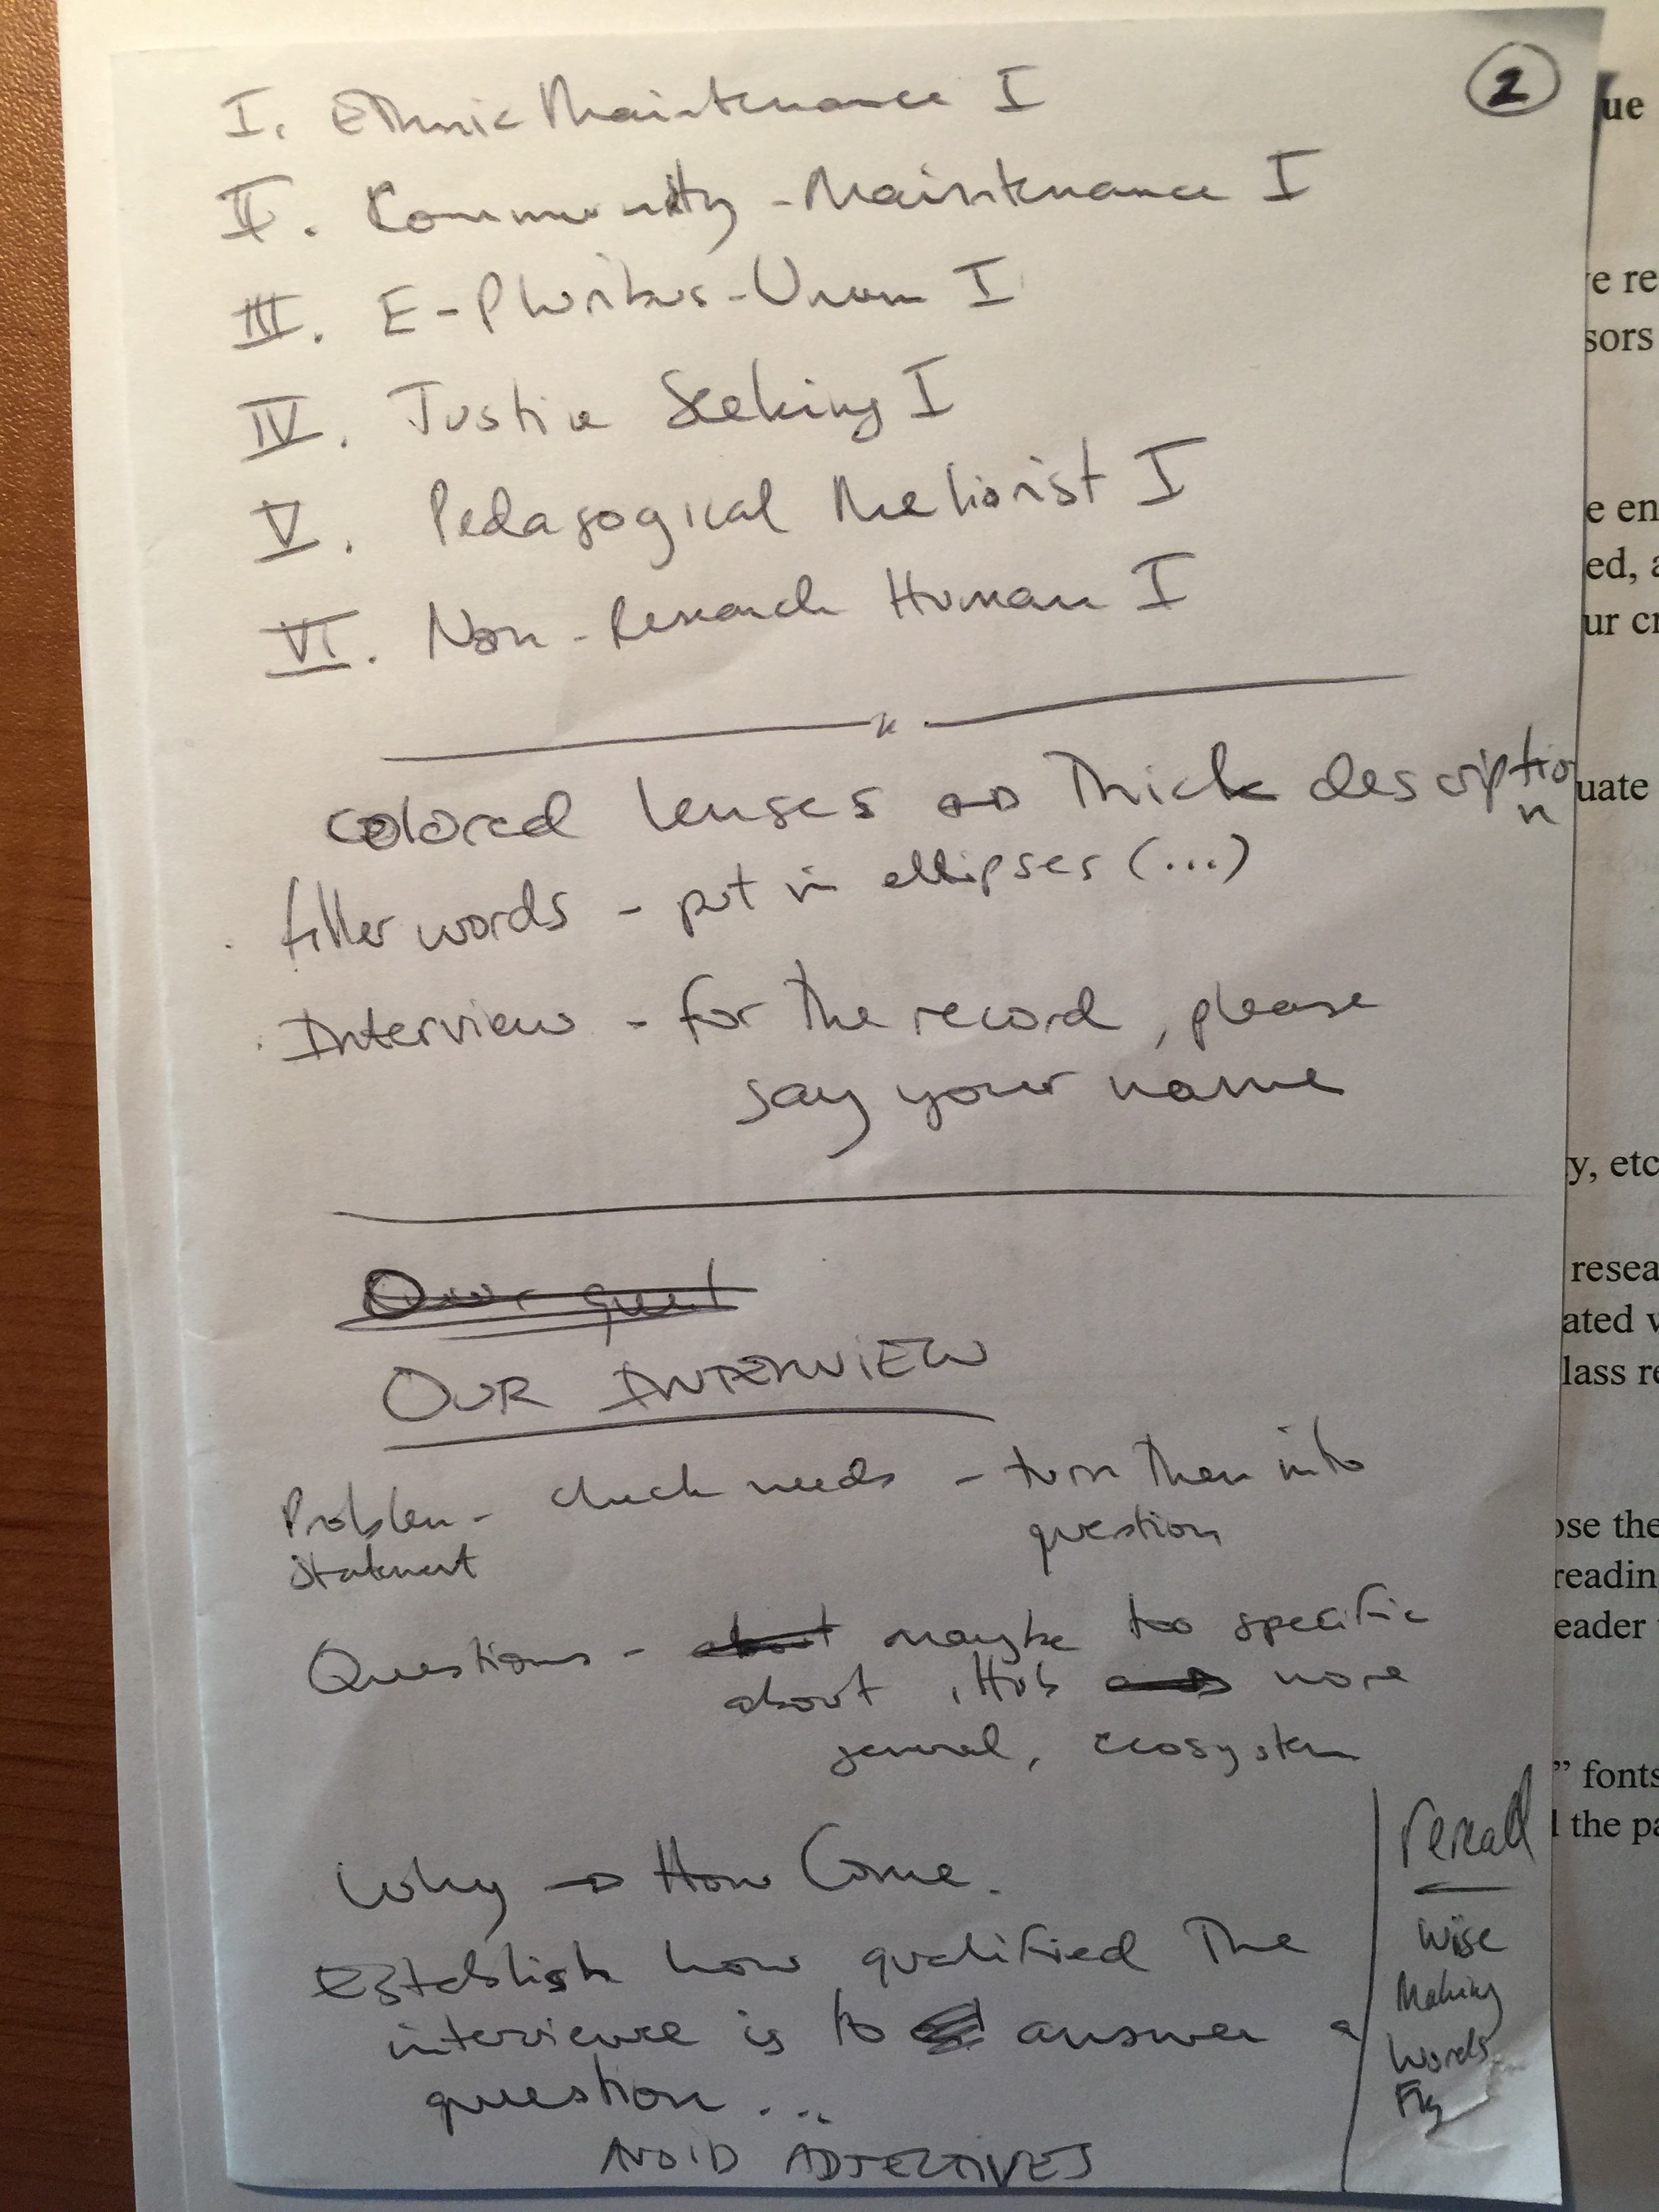 2
I. Ethnic Maintenance I
II. Community-Maintenance I
III. E-Pluribus-Unum I
IV. Justice Seeking I
V. Pedagogical Meliorist I
VI. Non-Research Human I
colored lenses → Thick description
filler words - put in ellipses (...)
Interview - for the record, please
say your name
OUR INTERVIEW
Problem - check needs - turn them into
statement question
Questions - about maybe too specific
about iHub → more
general, ecosystem
Why → How Come.
Establish how qualified the
interviewee is to answer a
question...
AVOID ADJECTIVES
reread
Wise
Making
Words
Fly
ue
e re
sors
e en
ed, a
ur cr
uate
y, etc
resea
ated v
lass re
ose the
reading
eader
” fonts
the pa